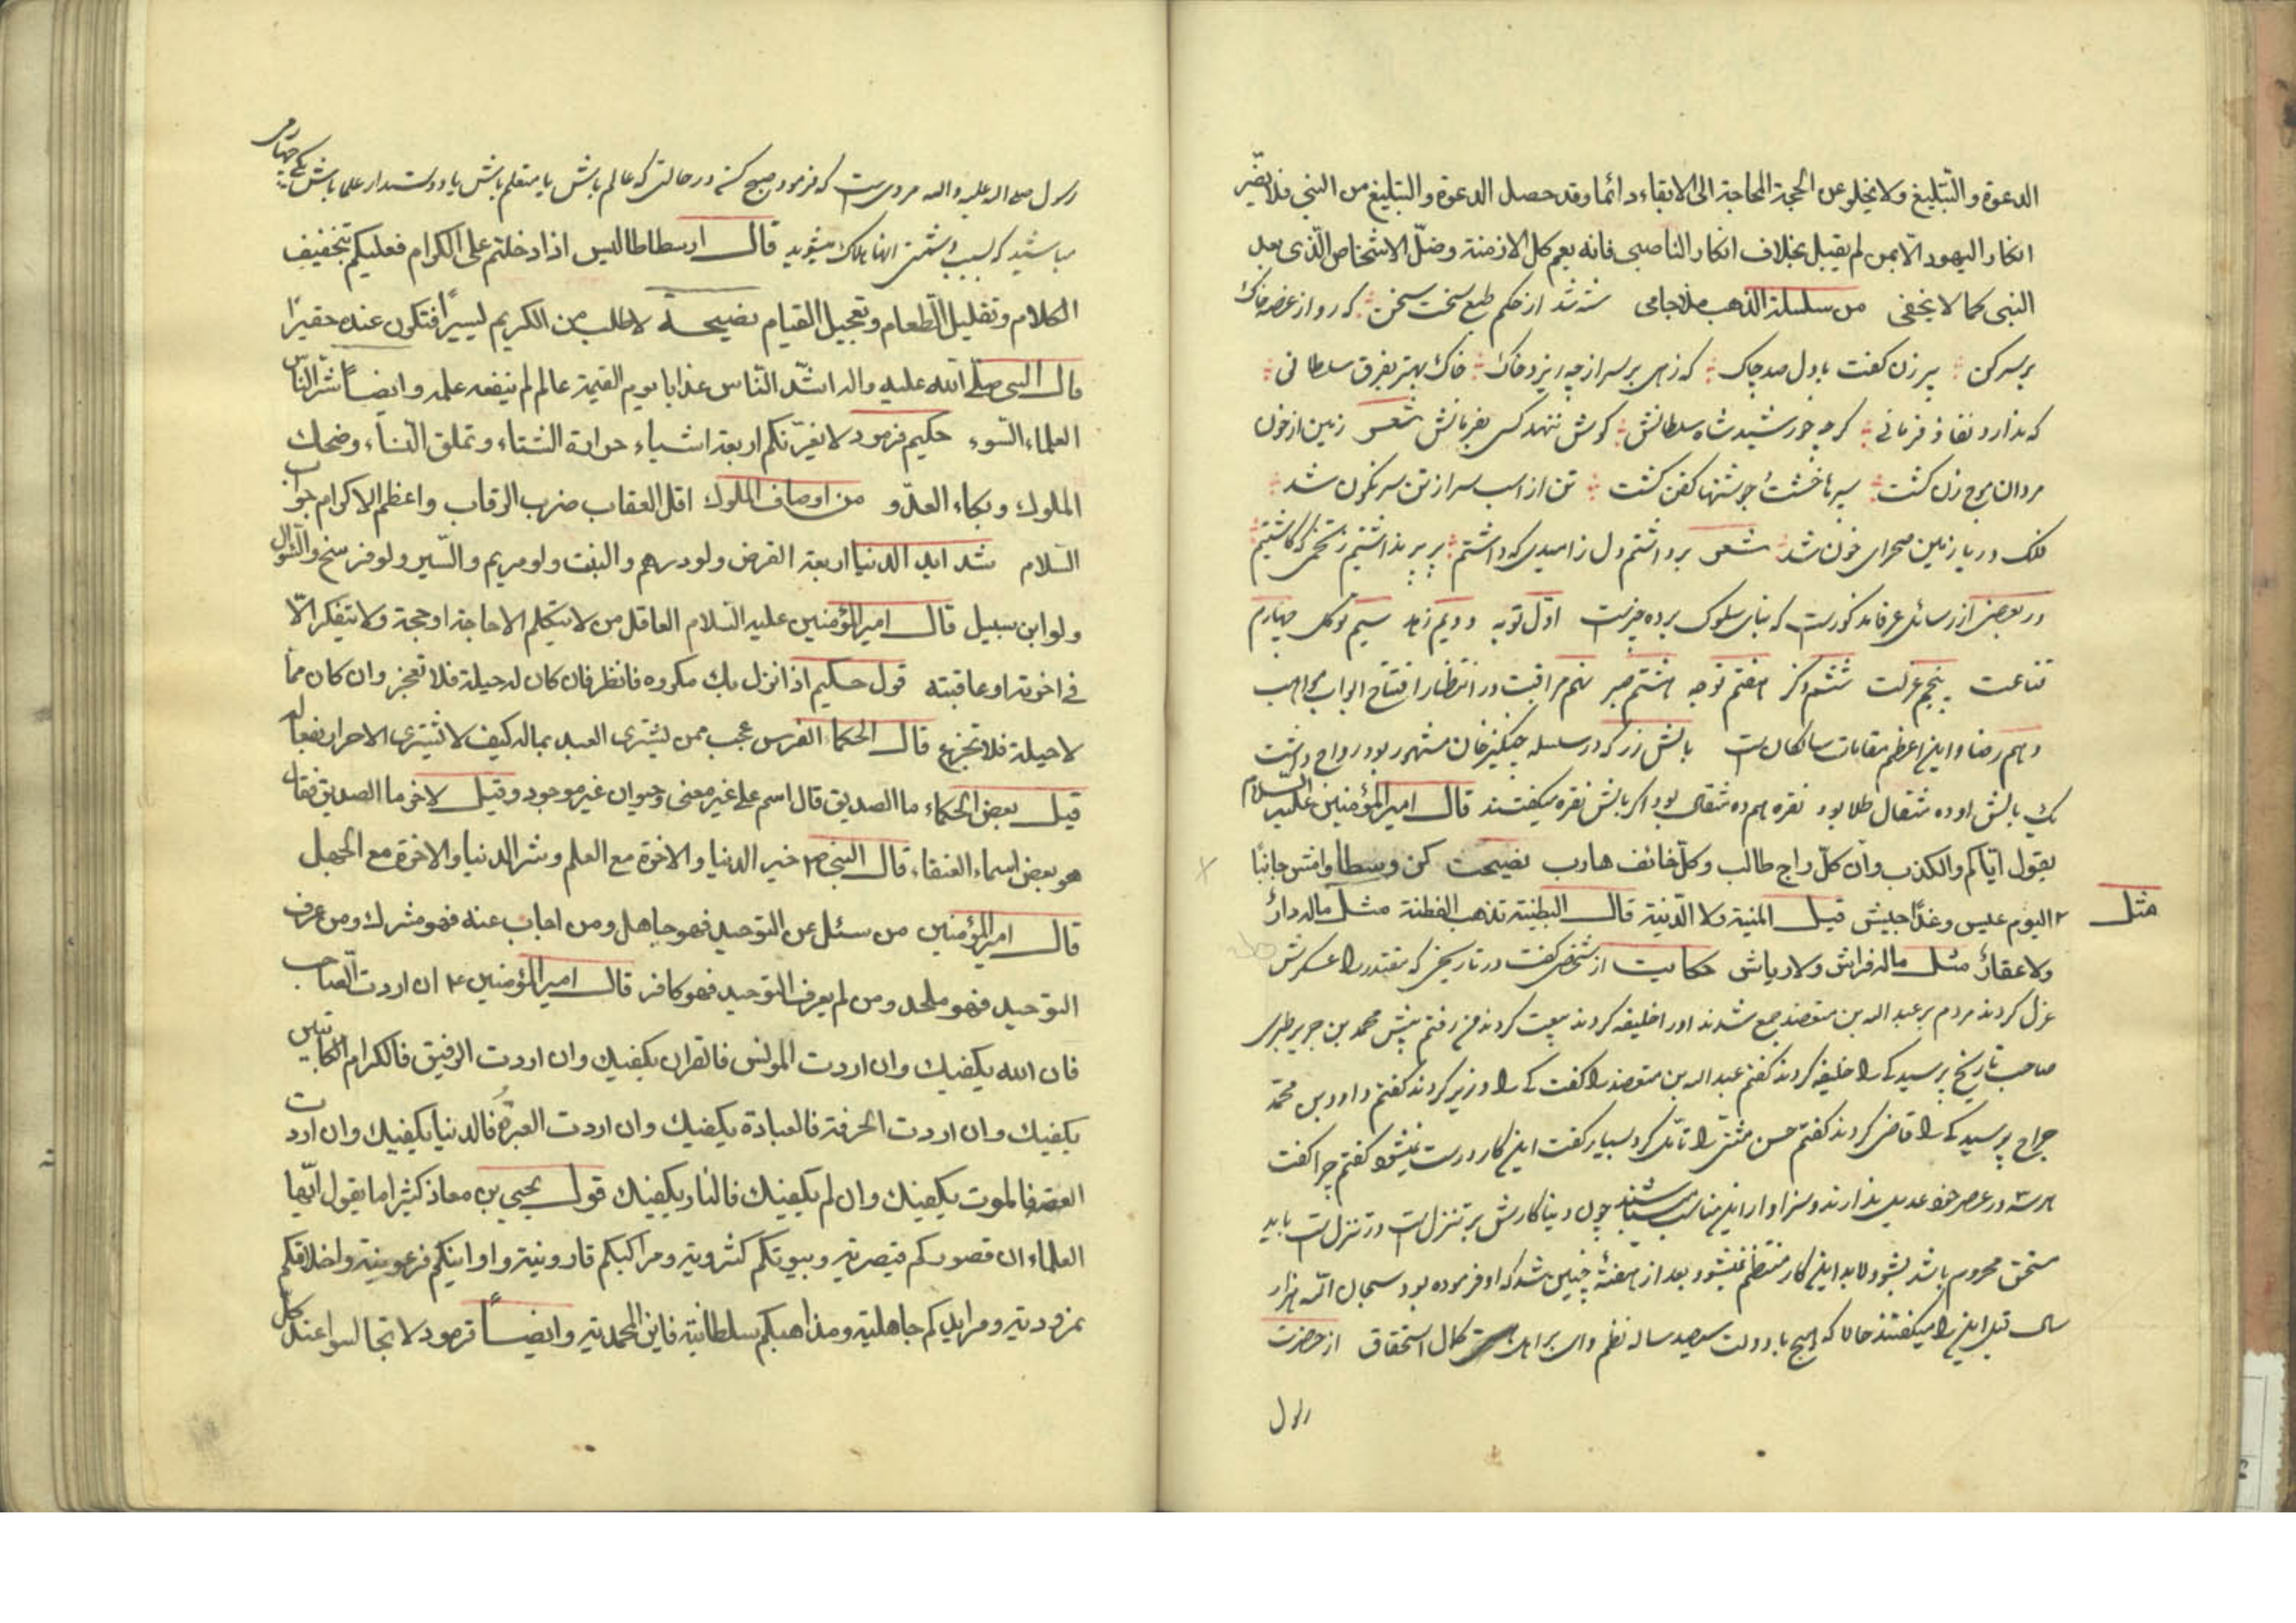 الدعوة والتبليغ ولا يخلو عن الحجة المحاجة الى الابقاء دائما وقد حصل الدعوة والتبليغ من النبي فلا يضر
انكار اليهود الا بمن لم يقبل بخلاف انكار الناصبى فانه يعم كل الازمنة وضل الاشخاص الذى بعد
النبى كما لا يخفى من سلسلة الذهب ملا جامى شه شد از حكم طبع سخت سخن كه رو از غصه خاك
بر سر كن پير زن كفت با دل صد چاك كه زهى بر سر از چه ريزد خاك خاك بهتر بفرق سلطانى
كه ندارد نفاذ فرمانى كر چه خورشيد شاه سلطانش كوش ننهد كسى بفرمانش شعر زمين از خون
مردان موج زن كشت سپرها خشت جوشنها كفن كشت تن از اسب سر از تن سرنكون شد
فلك دريا زمين صحراى خون شد شعر برداشتم دل ز اميدى كه داشتم بر پر نداشتيم ز تخمى كه كاشتيم
در بعضى از رسائل عرفا مذكورست كه بناى سلوك بر ده چيزست اول توبه دويم زهد سيم توكل چهارم
قناعت پنجم عزلت ششم ذكر هفتم توجه هشتم صبر نهم مراقبت در انتظار افتتاح ابواب مواهب
دهم رضا و اين اعظم مقامات سالكان است بالش زر كه در سلسله چنگيز خان مشهور بود رواج داشت
يك بالش او ده مثقال طلا بود نقره هم ده مثقال بود اكر بالش نقره ميكفتند قال امير المؤمنين عليه السلام
يقول اياكم والكذب وان كل راج طالب وكل خائف هارب نصيحت كن وسطا وامش جانبا
مثل اليوم عيس وغدا جيش قيل المنية ولا الدنية قال البطنة تذهب الفطنة مثل ماله دار
ولا عقار مثل ماله فراش ولا رياش حكايت از شخصى كفت در تاريخى كه مقتدر را عسكرش
عزل كردند مردم بر عبد الله بن معتضد جمع شدند او را خليفه كردند بيعت كردند من رفتم پيش محمد بن جرير طبرى
صاحب تاريخ پرسيد كه كرا خليفه كردند كفتم عبد الله بن معتضد را كفت كه را وزير كردند كفتم داود بن محمد
جراح پرسيد كه را قاضى كردند كفتم حسن مثنى را تامل كرد بسيار كفت اين كار درست نميشود كفتم چرا كفت
هر سه در عصر خود عديل ندارند وسزاوار اين مناسب ميباشند چون دنيا كارش بر تنزل است در تنزل است بايد
مستحق محروم باشد نشود لابد اين كار منتظم نميشود بعد از هفتهٔ چنين شد كه او فرموده بود سبحان الله هزار
سال قبل اين را ميكفتند حالا كه هيچ با دولت سيصد ساله نظم كمال استحقاق از حضرت
رسول
رسول صلى الله عليه واله مروى ست كه فرمود صبح كن در حالتى كه عالم باش يا متعلم باش يا دوستدار علما باش يكى چهارمى
مباشيد كه بسبب دشمنى انها هلاك ميشويد قال ارسطاطاليس اذا دخلتم على الكرام فعليكم بتخفيف
الكلام وتقليل الطعام وتعجيل القيام نصيحة لا تطلب من الكريم يسيرا فتكون عنده حقيرا
قال النبى صلى الله عليه واله اشد الناس عذابا يوم القيمة عالم لم ينفعه علمه وايضا شر الناس
العلماء السوء حكيم فرمود لا يغرنكم اربعة اشياء حرارة الشتاء وتملق النساء وضحك
الملوك وبكاء العدو من اوصاف الملوك اقل العقاب ضرب الرقاب واعظم الاكرام جواب
السلام شدايد الدنيا اربعة القرض ولو درهم والبنت ولو مريم والسير ولو فرسخ والسؤال
ولو ابن سبيل قال امير المؤمنين عليه السلام العاقل من لا يتكلم الا حاجة او حجة ولا يتفكر الا
فى اخرته او عاقبته قول حكيم اذا نزل بك مكروه فانظر فان كان له حيلة فلا تعجز وان كان مما
لا حيلة فلا تجزع قال الحكماء الفرس عجب ممن يشترى العبد بماله كيف لا يشترى الاحرار بفعاله
قيل بعض الحكماء ما الصديق قال اسم على غير معنى وحيوان غير موجود وقيل لاخر ما الصديق فقال
هو بعض اسماء العنقاء قال النبى ص خير الدنيا والاخرة مع العلم وشر الدنيا والاخرة مع الجهل
قال امير المؤمنين من سئل عن التوحيد فهو جاهل ومن اجاب عنه فهو مشرك ومن عرف
التوحيد فهو ملحد ومن لم يعرف التوحيد فهو كافر قال امير المؤمنين ع ان اردت الصاحب
فان الله يكفيك وان اردت المونس فالقران يكفيك وان اردت الرفيق فالكرام الكاتبين
يكفيك وان اردت الحرفة فالعبادة يكفيك وان اردت العبرة فالدنيا يكفيك وان اردت
فالموت يكفيك وان لم يكفيك فالنار يكفيك قول يحيى بن معاذ كثيرا ما يقول ايها
العلماء ان قصوركم قيصرية وبيوتكم كسروية ومراكبكم قارونية واوانيكم فرعونية واخلاقكم
نمرودية وموايدكم جاهلية ومذاهبكم سلطانية فاين المحمدية وايضا فرمود لا تجالسوا عند كل